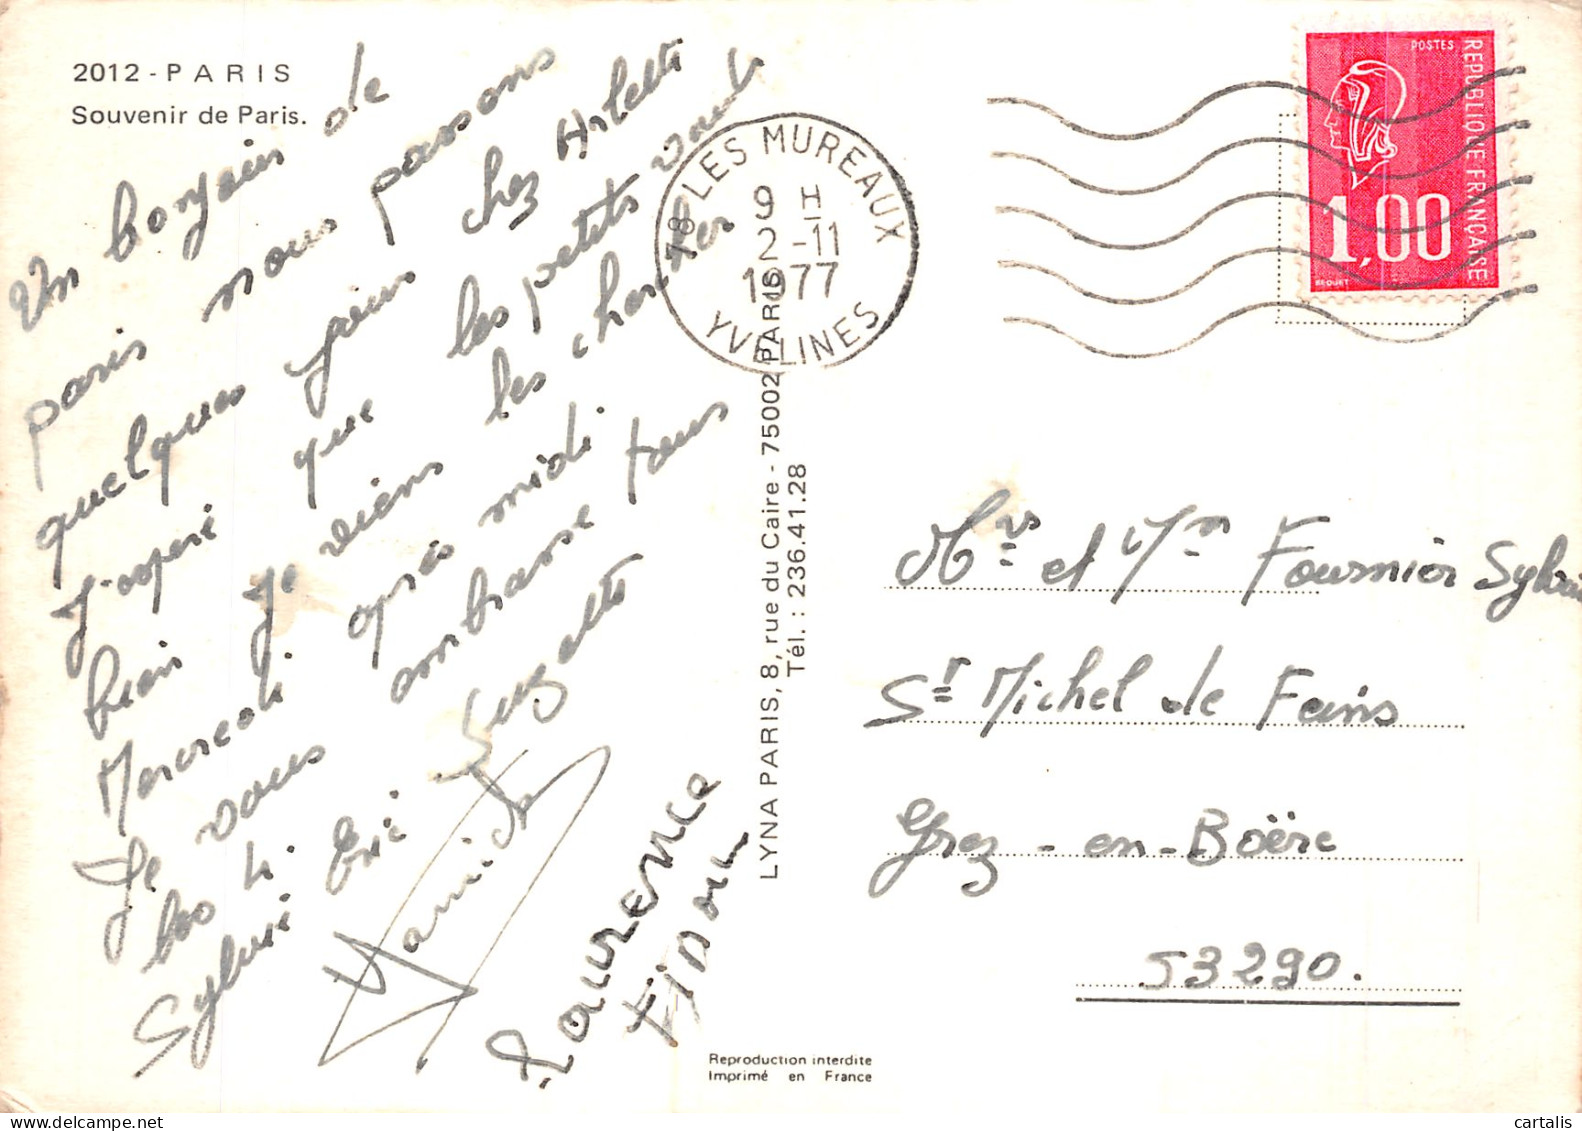 2012 - PARIS
Souvenir de Paris.
Un bonjour de
paris nous passons
quelques jours chez Arlette
J'espere que les petits vont
bien je viens les chercher
Mercredi apres midi
Je vous embrasse tous
Suzette
Sylvie Eric
LAURENCE
LYNA PARIS, 8, rue du Caire - 75002 PARIS
Tél. : 236.41.28
78 LES MUREAUX
9 H
2 -11
1977
YVELINES
POSTES
REPUBLIQUE FRANÇAISE
1,00
BEQUET
Mrs et Mm Fournier Sylvain
St Michel de Feins
Grez - en - Boëre
53290.
Reproduction interdite
Imprimé en France
cartalis